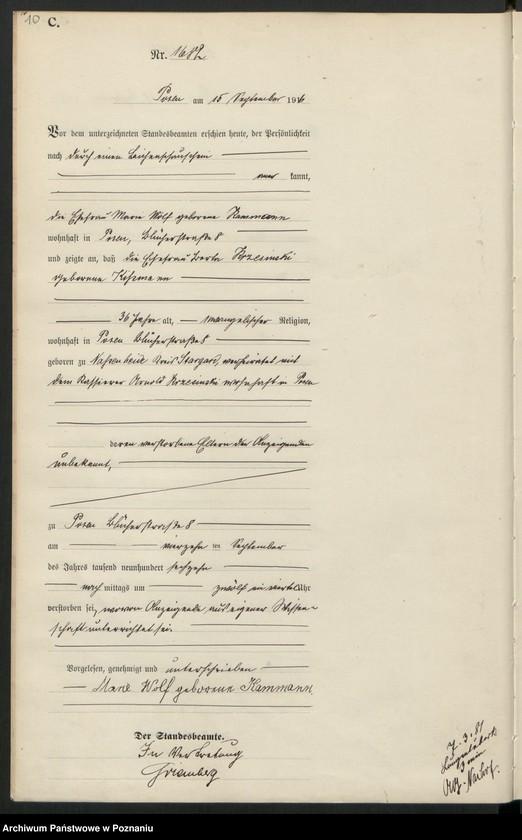 10
C.
Nr. 1682
Posen am 15 September 1916
Vor dem unterzeichneten Standesbeamten erschien heute, der Persönlichkeit
nach durch einen Leichenschauschein
aner kannt,
die Ehefrau Marie Wolf geborene Kammann
wohnhaft in Posen, Blücherstraße 8
und zeigte an, daß die Ehefrau Berta Krzesinski
geborene
36 Jahre alt, evangelischer Religion,
wohnhaft in Posen Blücherstraße 8
geboren zu Kreis Stargard, verheiratet mit
dem Kassierer Arnold Krzesinski wohnhaft in Posen
deren verstorbene Eltern der Anzeigenden
unbekannt,
zu Posen Blücherstraße 8
am vierzehn ten September
des Jahres tausend neunhundert sechzehn
nach mittags um zwölf ein viertel Uhr
verstorben sei, wovon Anzeigende aus eigener Wissen-
schaft unterrichtet sei.
Vorgelesen, genehmigt und unterschrieben
Marie Wolf geborene Kammann
Der Standesbeamte.
In Vertretung
7. 3. 81
Archiwum Państwowe w Poznaniu